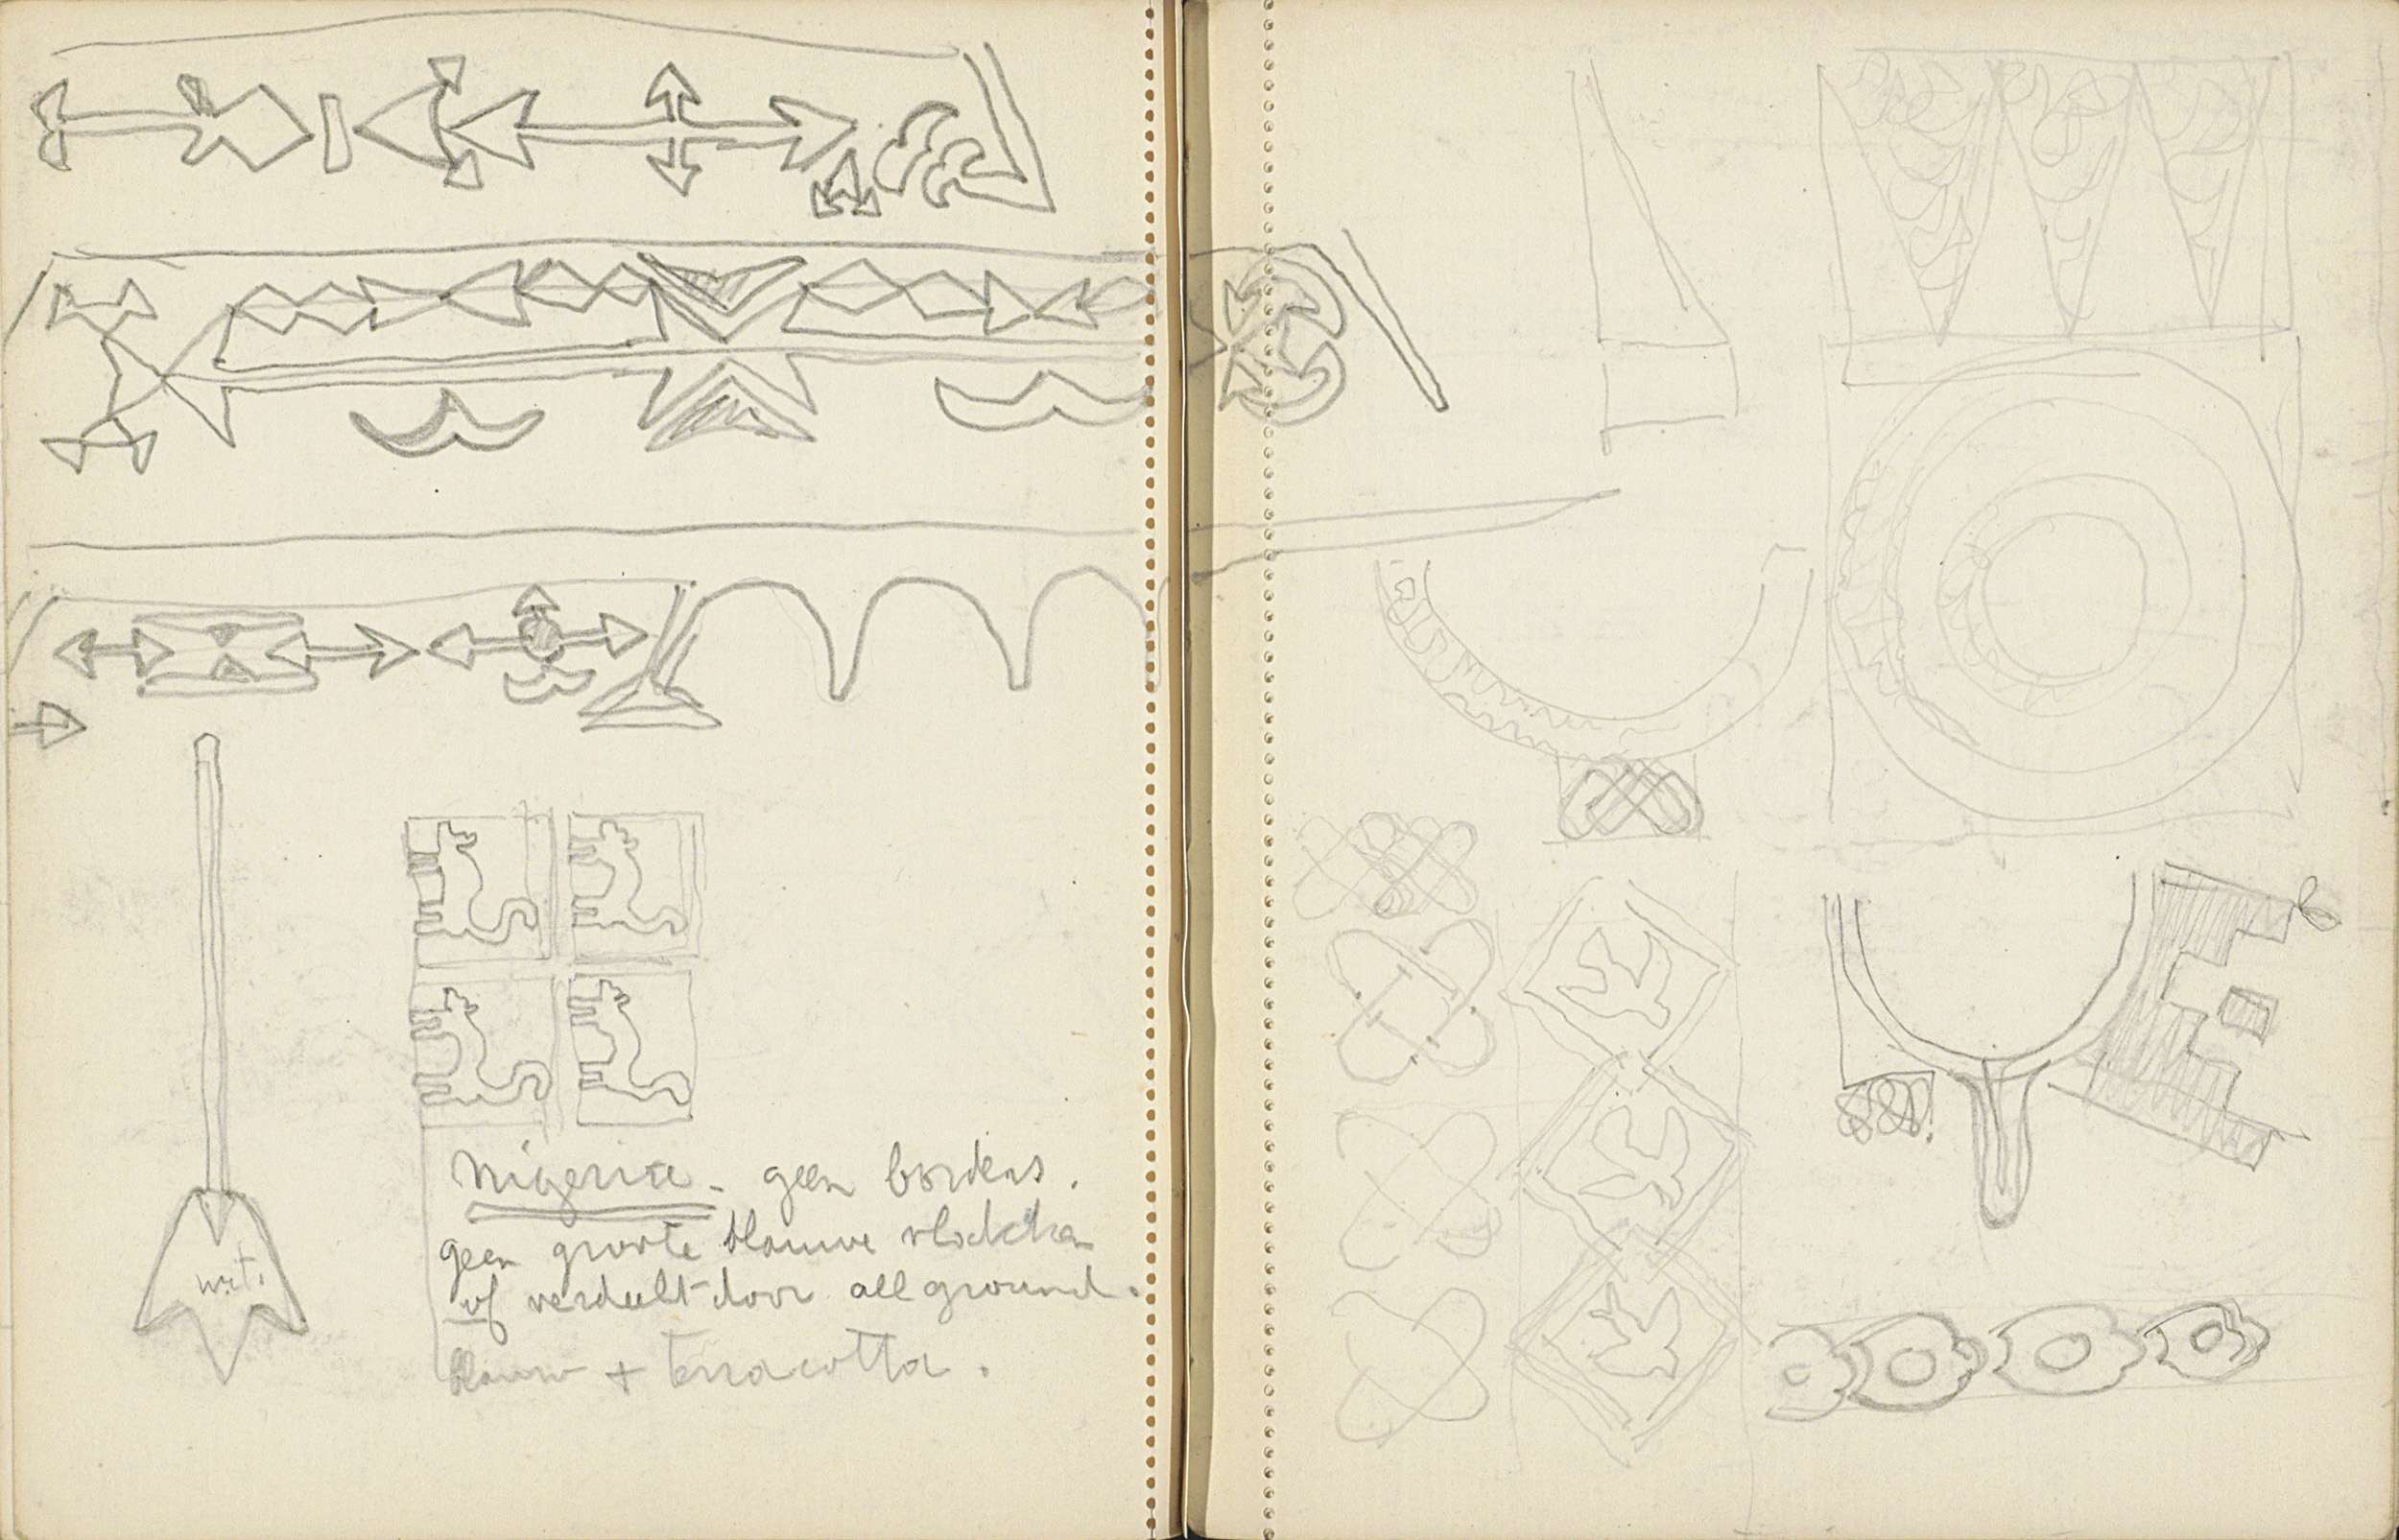 wit.
Nigeria - geen borders.
geen groote blauwe vlakken
of verdeelt door all ground.
blauw + terracotta.